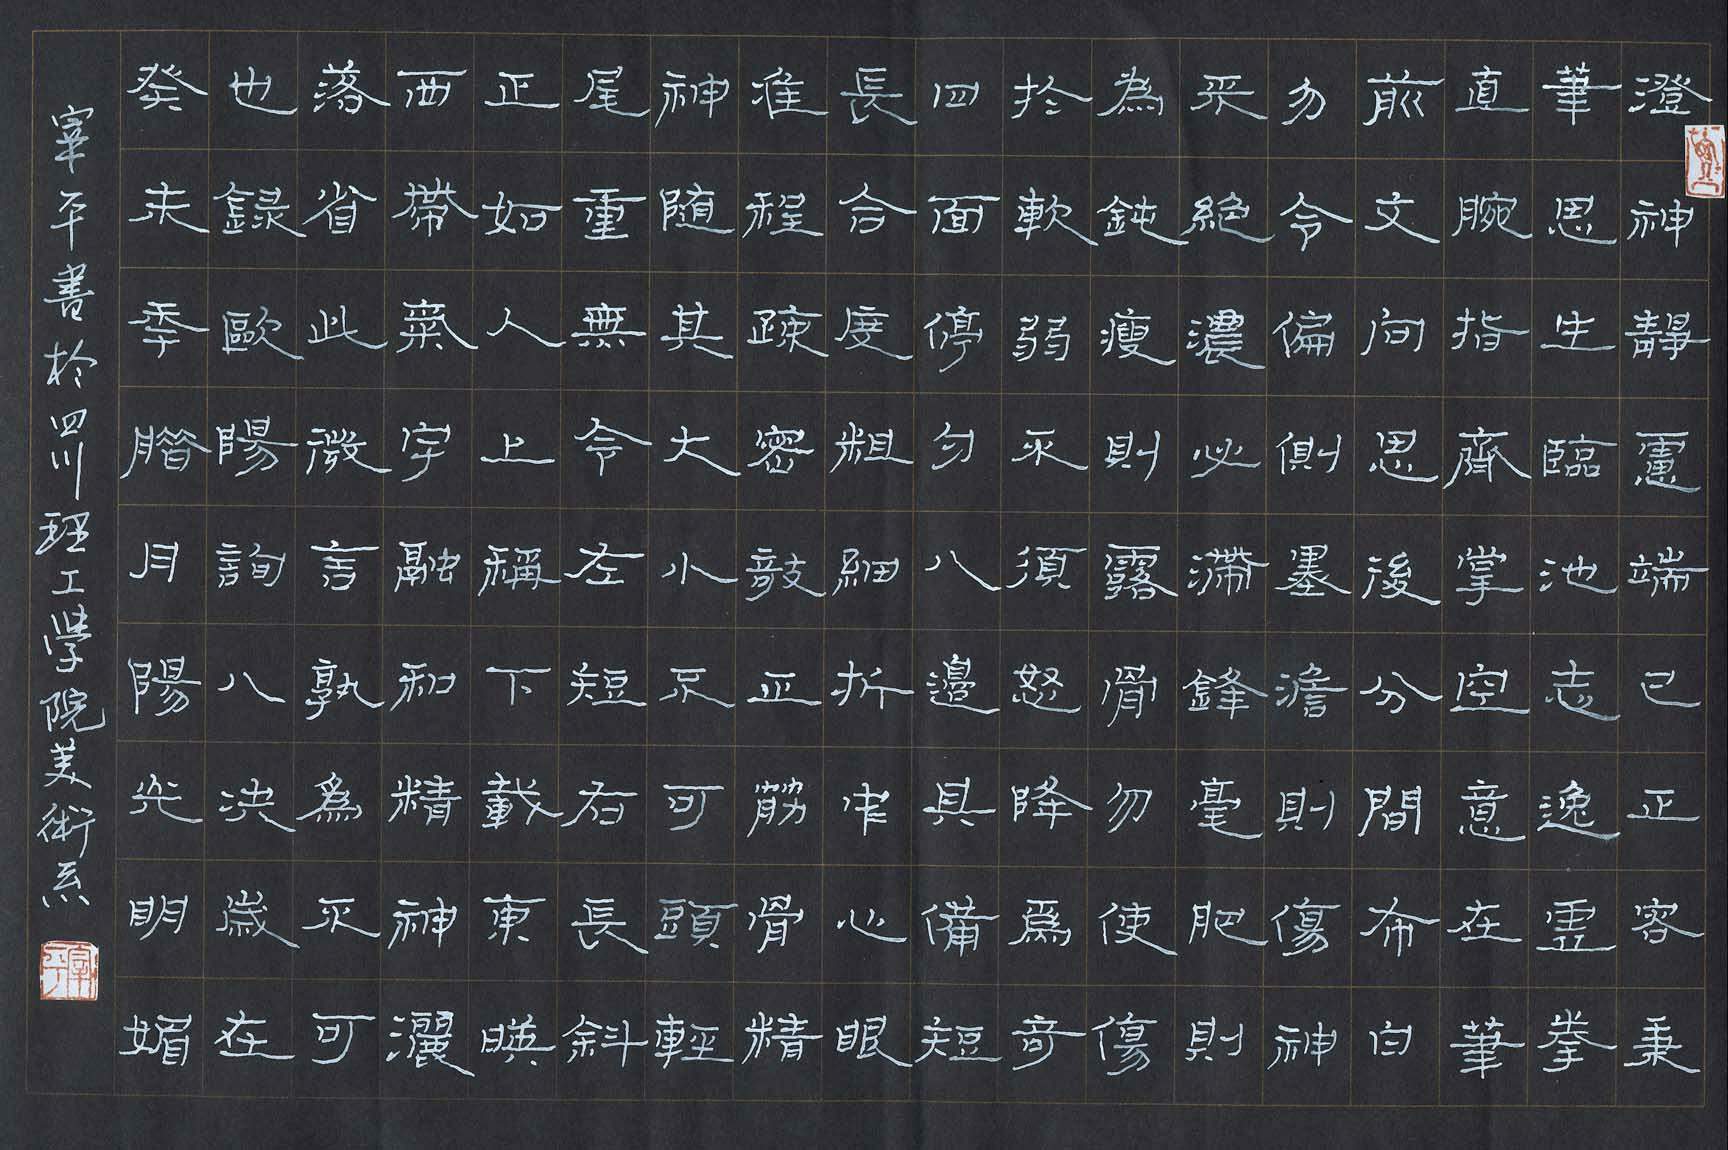 澄神靜慮端己正容秉
筆思生臨池志逸虛拳
直腕指齊掌空意在筆
前文向思後分間布白
勿令偏側墨澹則傷神
采絕濃必滯鋒毫肥則
為鈍瘦則露骨勿使傷
於軟弱不須怒降爲奇
四面停勻八邊具備短
長合度粗細折中心眼
准程疎密敧正筋骨精
神隨其大小不可頭輕
尾重無令左短右長斜
正如人上稱下載東暎
西帶氣宇融和精神灑
落省此微言孰爲不可
也録歐陽詢八決歲在
癸未季臘月陽光明媚
宰平書於四川理工學院美術系
宰平